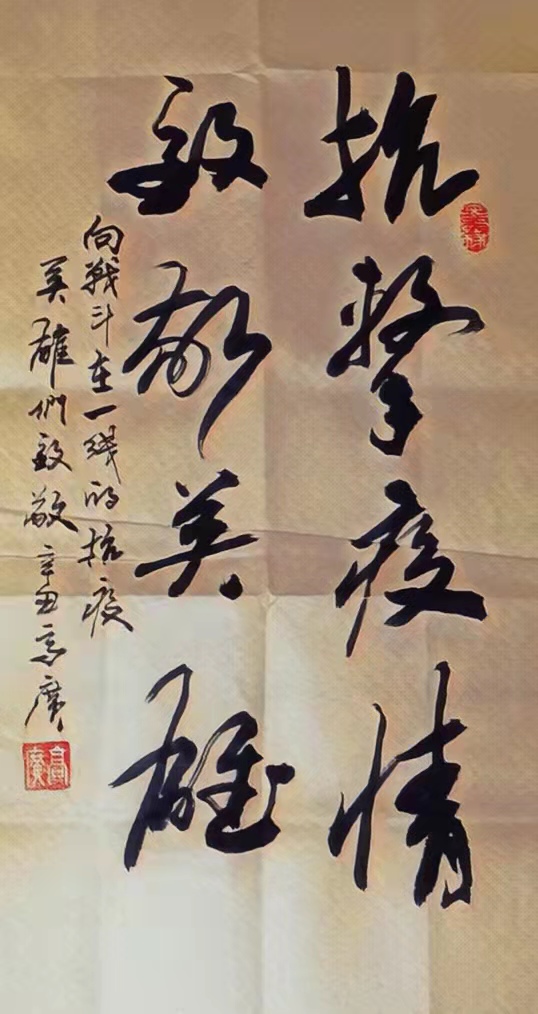 抗擊疫情
致敬英雄
向戰斗在一线的抗疫
英雄們致敬 辛丑 高廣
高廣